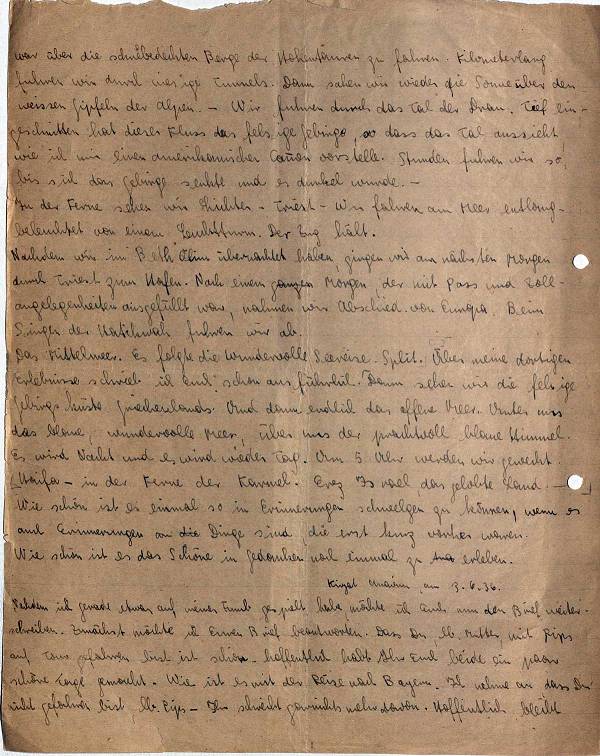 war über die schneebedeckten Berge der Hohentauren zu fahren. Kilometerlang
fuhren wir durch riesige Tunnels. Dann sahen wir wieder die Sonne über den
weissen Gipfeln der Alpen. – Wir fuhren durch das Tal der Drau. Tief ein-
geschnitten hat dieser Fluss das felsige Gebirge, so dass das Tal aussieht
wie ich mir einen amerikanischen Cañon vorstelle. Stunden fuhren wir so,
bis sich das Gebirge senkte und es dunkel wurde. –
In der Ferne sehen wir Lichter – Triest – Wir fahren am Meer entlang –
beleuchtet von einem Leuchtturm. Der Zug hält.
Nachdem wir im Beth Olim übernachtet haben, gingen wir am nächsten Morgen
durch Triest zum Hafen. Nach einem ganzen Morgen, der mit Pass und Zoll-
angelegenheiten ausgefüllt war, nahmen wir Abschied von Europa. Beim
Singen der Hatikwah fuhren wir ab.
Das Mittelmeer. Es folgte die wundervolle Seereise. Split. Über meine dortigen
Erlebnisse schrieb ich Euch schon ausführlich. Dann sehen wir die felsige
Gebirgsküste Griechenlands. Und dann endlich das offene Meer. Unter uns
das blaue, wundervolle Meer, über uns der prachtvoll blaue Himmel.
Es wird Nacht und es wird wieder Tag. Um 5 Uhr werden wir geweckt.
"Haifa – in der Ferne der Karmel". Erez Israel, das gelobte Land. –
Wie schön ist es einmal so in Erinnerungen schwelgen zu können, wenn es
auch Erinnerungen an die Dinge sind, die erst kurz vorher waren.
Wie schön ist es das Schöne in Gedanken noch einmal zu erleben.
Kirjat am 3.6.36.
Nachdem ich gerade etwas auf meiner gespielt habe möchte ich Euch nun den Brief weiter-
schreiben. Zunächst möchte ich Euren Brief beantworten. Dass Du, lb. Mutter, mit Pips
auf Tour gefahren bist ist schön – hoffentlich habt Ihr Euch beide ein paar
schöne Tage gemacht. Wie ist es mit der Reise nach Bayern. Ich nehme an dass Du
nicht gefahren bist lb. Pips – Ihr schreibt garnichts mehr davon. Hoffentlich bleibt